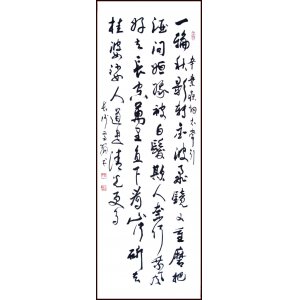 辛棄疾詞太常引
一輪秋影轉金波飛鏡又重磨把
酒問姮娥被白髮欺人奈何乘風
好去長空萬里直下看山河斫去
桂婆娑人道是清光更多